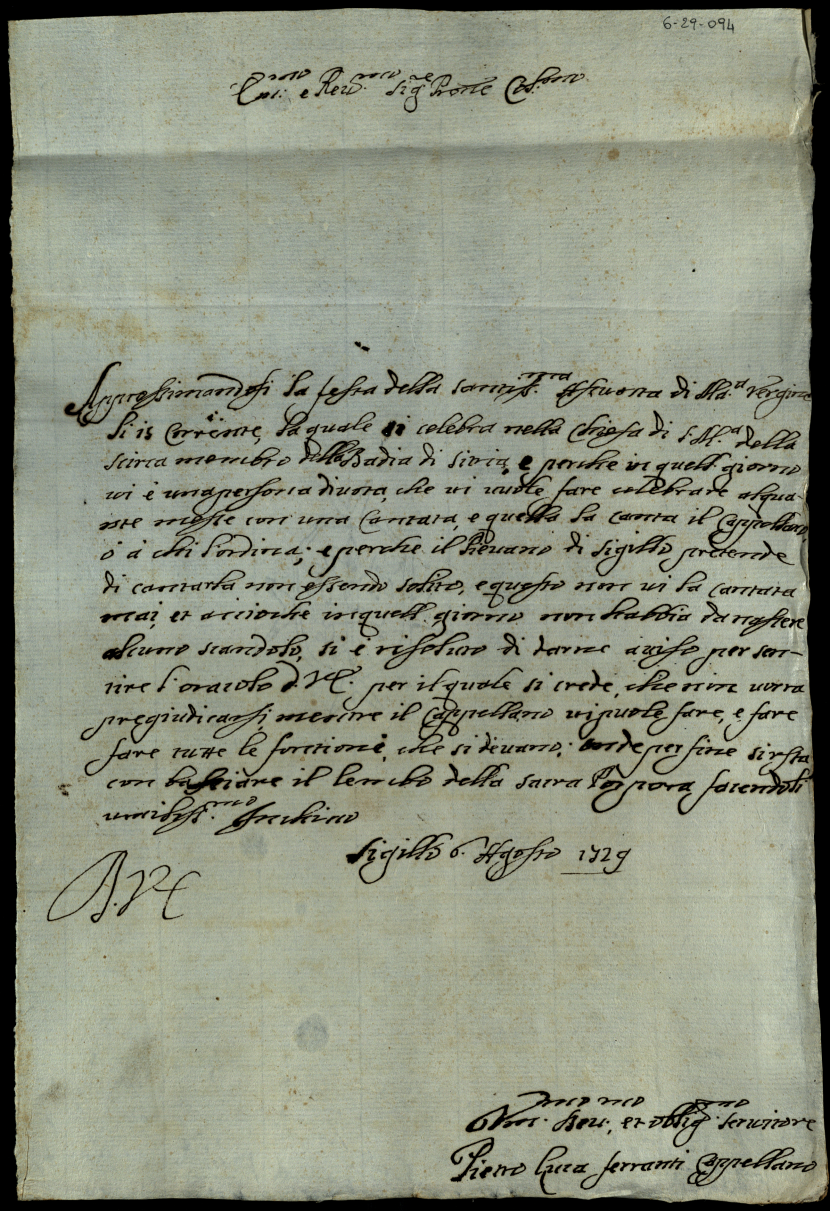 6-29-094
Em:mo e Rev:mo Sig:re Prone Col:mo
Approssimandosi la festa della Santiss:ma Assunta di Ma:a Vergine
li 15 Corrente, la quale si celebra nella Chiesa di S. M:a della
Scirca membro della Badia di Sitria, e perche in quell giorno
vi è una persona divota, che vi vuole fare celebrare alqua-
nte messe con una Cantata, e quella la canta il Cappellano,
ò à chi l'ordina; e perche il Pievano di Sigillo pretende
di cantarla non essendo solito, e questo non vi la cantata
mai, et accioche in quell giorno non habbia da nascere
alcuno scandolo, si è risoluto di darne aviso per sen-
tire l'oracolo d. V.E. per il quale si crede, che non vorra
pregiudicarsi mentre il Cappellano vi puole fare, e fare
fare tutte le fontioni, che si devano; onde per fine si resta
con basciare il lembo della sacra Porpora, facendoli
umiliss:mo Inchino
Sigillo 6. Agosto 1729
D. V. E.
Um:mo Dev:mo, et obblig:mo servitore
Pietro Luca Ferranti Cappellano